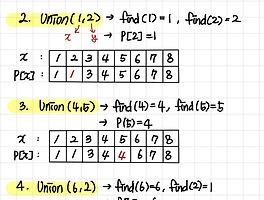 2. Union(1,2) → find(1)=1, find(2)=2
x y → P[2]=1
x : 1 2 3 4 5 6 7 8
P[x] : 1 1 3 4 5 6 7 8
3. Union(4,5) → find(4)=4, find(5)=5
→ P(5)=4
x : 1 2 3 4 5 6 7 8
P[x] : 1 1 3 4 4 6 7 8
4. Union(6,2) → find(6)=6, find(2)=1